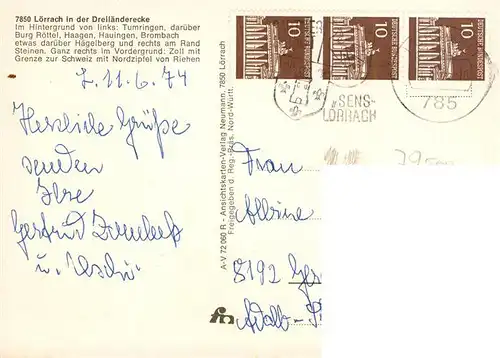 7850 Lörrach in der Dreiländerecke
Im Hintergrund von links: Tumringen, darüber
Burg Röttel, Haagen, Hauingen, Brombach
etwas darüber Hägelberg und rechts am Rand
Steinen. Ganz rechts im Vordergrund: Zoll mit
Grenze zur Schweiz mit Nordzipfel von Riehen
11.6.74
Herzliche Grüße
senden
Ihre
Gertrud
u. Uschi
A-V 72 060 R - Ansichtskarten-Verlag Neumann, 7850 Lörrach
Freigegeben d. Reg.-Präs. Nord-Württ.
10 DEUTSCHE BUNDESPOST
10 DEUTSCHE BUNDESPOST
10 DEUTSCHE BUNDESPOST
SENS-
LÖRRACH
785
Frau
8192